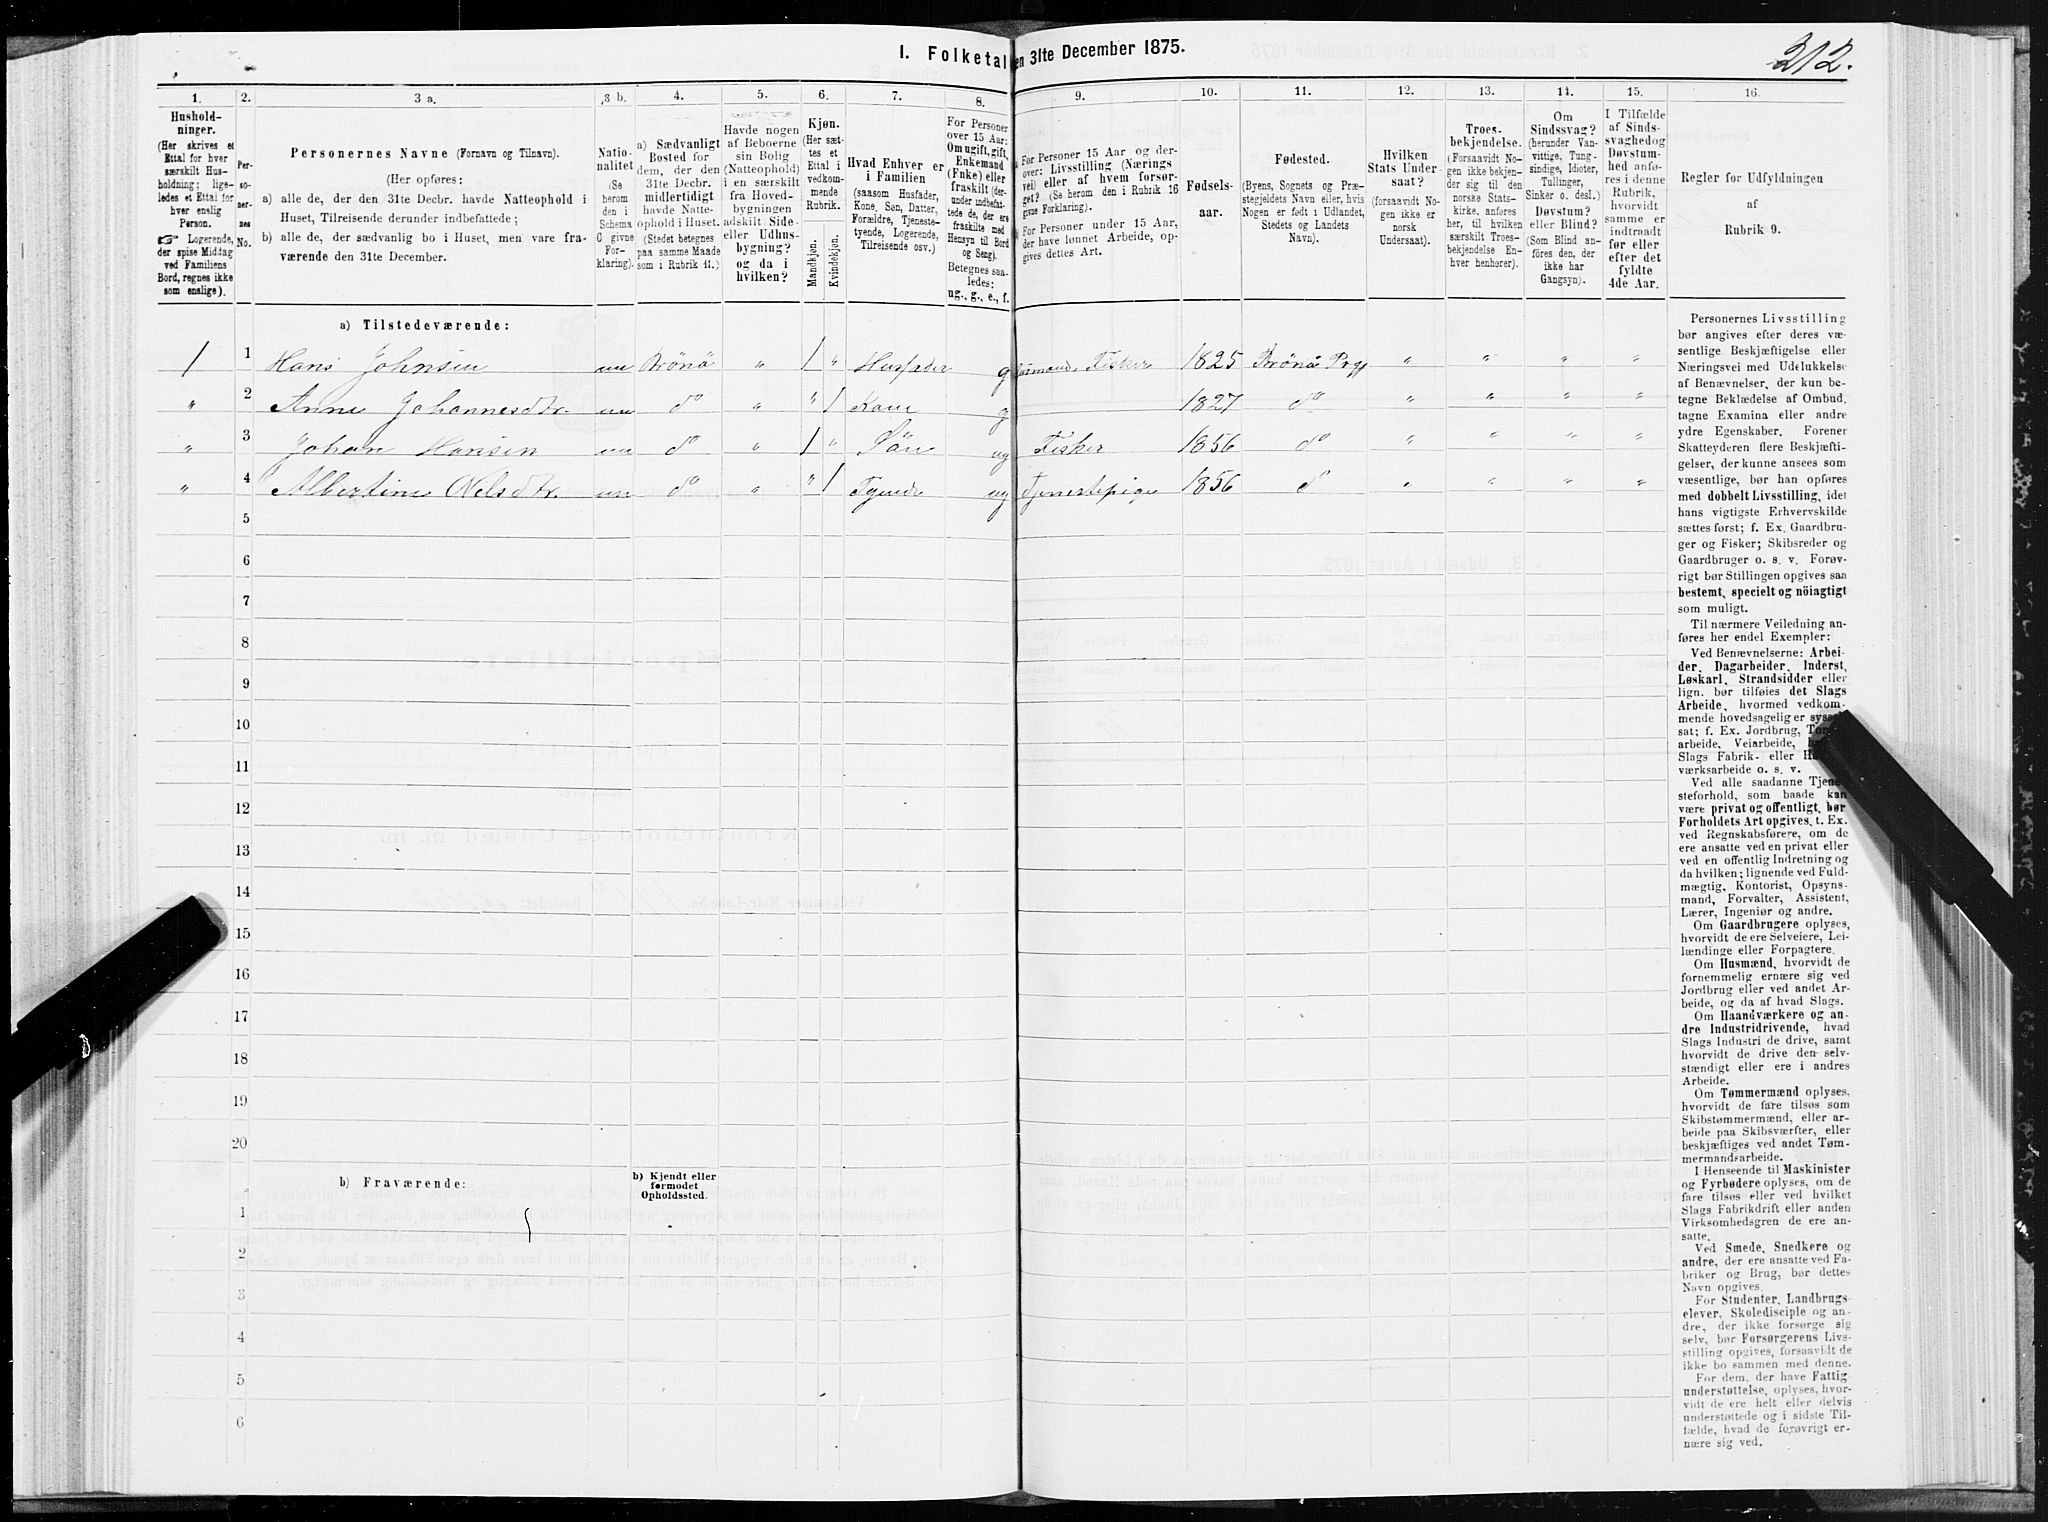 I. Folketal den 31te December 1875.
212.
1.
Husholdninger.
(Her skrives et
Ettal for hver
særskilt Husholdning; ligeledes et Ettal for
hver enslig
Person.
☞ Logerende,
der spise Middag
ved Familiens
Bord, regnes ikke
som enslige).
2.
Personernes
No.
3 a.
Personernes Navne (Fornavn og Tilnavn).
(Her opføres:
a) alle de, der den 31te Decbr. havde Natteophold i
Huset, Tilreisende derunder indbefattede;
b) alle de, der sædvanlig bo i Huset, men vare fraværende den 31te December.
3 b.
Nationalitet
(Se
herom
den i
Schema
C givne
Forklaring).
4.
a) Sædvanligt
Bosted for
dem, der den
31te Decbr.
midlertidigt
havde Natteophold i Huset.
(Stedet betegnes
paa samme Maade
som i Rubrik 11.)
5.
Havde nogen
af Beboerne
sin Bolig
(Natteophold)
i en særskilt
fra Hovedbygningen
adskilt Side-
eller Udhusbygning?
og da i
hvilken?
6.
Kjøn.
(Her sættes et
Ettal i
vedkommende
Rubrik.
Mandkjøn.
Kvindekjøn.
7.
Hvad Enhver er
i Familien
(saasom Husfader,
Kone, Søn, Datter,
Forældre, Tjenestetyende, Logerende,
Tilreisende osv.)
8.
For Personer
over 15 Aar:
Om ugift, gift,
Enkemand
(Enke) eller
fraskilt (derunder indbefattede de, der ere
fraskilte med
Hensyn til Bord
og Seng).
Betegnes saaledes:
ug., g., e., f.
9.
For Personer 15 Aar og derover: Livsstilling (Næringsvei) eller af hvem forsørget? (Se herom de i Rubrik 16
givne Forklaring.)
For Personer under 15 Aar,
der have lønnet Arbeide, opgives dettes Art.
10.
Fødselsaar.
11.
Fødested.
(Byens, Sognets og Præstegjeldets Navn eller, hvis
Nogen er født i Udlandet,
Stedets og Landets
Navn).
12.
Hvilken
Stats Undersaat?
(forsaavidt Nogen ikke er
norsk
Undersaat).
13.
Troesbekjendelse.
(Forsaavidt Nogen ikke bekjender sig til den
norske Statskirke, anføres
her, til hvilken
særskilt Troesbekjendelse Enhver henhører).
14.
Om
Sindssvag?
(herunder Vanvittige, Tungsindige, Idioter,
Tullinger,
Sinker o. desl.)
Døvstum?
eller Blind?
(Som Blind anføres den, der
ikke har
Gangsyn).
15.
I Tilfælde
af Sindssvaghed og
Døvstumhed anføres i denne
Rubrik,
hvorvidt
samme er
indtraadt
før eller
efter det
fyldte
4de Aar.
16.
Regler for Udfyldningen
af
Rubrik 9.
a) Tilstedeværende:
1 1 Hans Johnsen nn Brönö " 1 " Husfader g Fisker 1825 Brönö Prgj " " " "
" 2 Anne Johannesdtr. nn do " " 1 Kone g 1827 do " " " "
" 3 Johan Hansen nn do " 1 " Sön ug Fisker 1856 do " " " "
" 4 Albertine Nilsdtr. nn do " " 1 Tyende ug Tjenestepige 1856 d " " " "
5
6
7
8
9
10
11
12
13
14
15
16
17
18
19
20
b) Fraværende:
b) Kjendt eller
formodet
Opholdssted.
1
2
3
4
5
6
Personernes Livsstilling
bør angives efter deres væsentlige Beskjæftigelse eller
Næringsvei med Udelukkelse
af Benævnelser, der kun betegne Beklædelse af Ombud,
tagne Examina eller andre
ydre Egenskaber. Forener
Skatteyderen flere Beskjæftigelser, der kunne ansees som
væsentlige, bør han opføres
med dobbelt Livsstilling, idet
hans vigtigste Erhvervskilde
sættes først; f. Ex. Gaardbruger og Fisker; Skibsreder og
Gaardbruger o. s. v. Forøvrigt bør Stillingen opgives saa
bestemt, specielt og nöiagtigt
som muligt.
Til nærmere Veiledning anføres her endel Exempler:
Ved Benævnelserne: Arbeider, Dagarbeider, Inderst,
Løskarl, Strandsidder eller
lign. bør tilføies det Slags
Arbeide, hvormed vedkommende hovedsagelig er sysselsat; f. Ex. Jordbrug, Tomtearbeide, Veiarbeide, hvad
Slags Fabrik- eller Haandværksarbeide o. s. v.
Ved alle saadanne Tjenesteforhold, som baade kan
være privat og offentligt, bør
Forholdets Art opgives, t. Ex.
ved Regnskabsførere, om de
ere ansatte ved en privat eller
ved en offentlig Indretning og
da hvilken; lignende ved Fuldmægtig, Kontorist, Opsynsmand, Forvalter, Assistent,
Lærer, Ingeniør og andre.
Om Gaardbrugere oplyses,
hvorvidt de ere Selveiere, Leilændinge eller Forpagtere.
Om Husmænd, hvorvidt de
fornemmelig ernære sig ved
Jordbrug eller ved andet Arbeide, og da af hvad Slags.
Om Haandværkere og andre Industridrivende, hvad
Slags Industri de drive, samt
hvorvidt de drive den selvstændigt eller ere i andres
Arbeide.
Om Tømmermænd oplyses,
hvorvidt de fare tilsøs som
Skibstømmermænd, eller arbeide paa Skibsværfter, eller
beskjæftiges ved andet Tømmermandsarbeide.
I Henseende til Maskinister
og Fyrbødere oplyses, om de
fare tilsøs eller ved hvilket
Slags Fabrikdrift eller anden
Virksomhedsgren de ere ansatte.
Ved Smede, Snedkere og
andre, der ere ansatte ved Fabriker og Brug, bør dettes
Navn opgives.
For Studenter, Landbrugselever, Skoledisciple og andre, der ikke forsørge sig
selv, bør Forsørgerens Livsstilling opgives, forsaavidt de
ikke bo sammen med denne.
For dem, der have Fattigunderstøttelse, oplyses, hvorvidt de ere helt eller delvis
understøttede og i sidste Tilfælde, hvad de forøvrigt ernære sig ved.